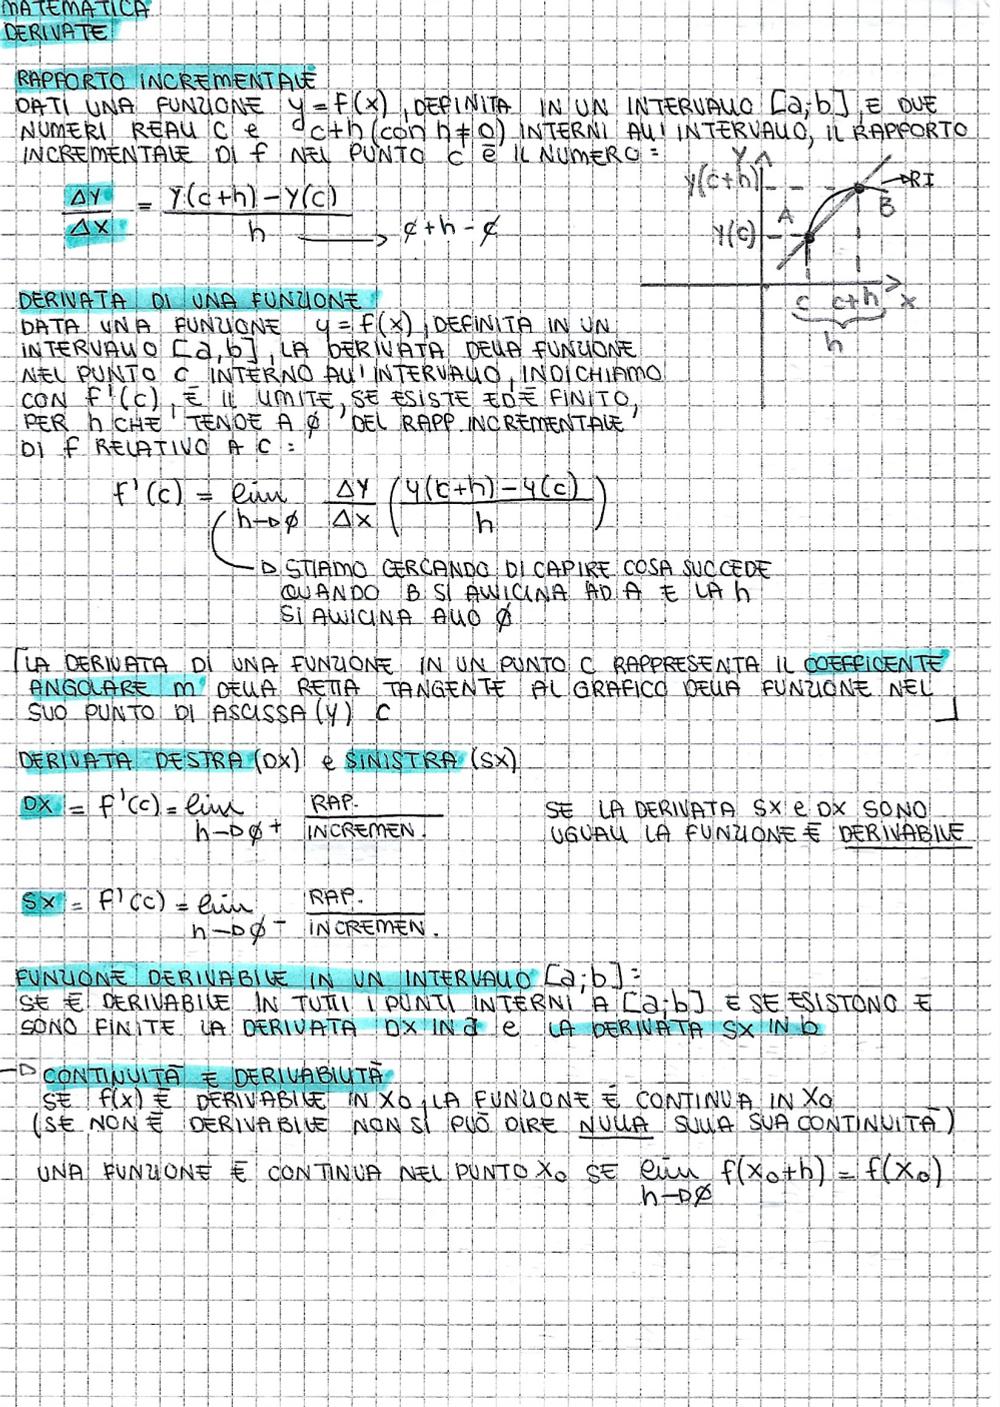 MATEMATICA
DERIVATE
RAPPORTO INCREMENTALE
DATI UNA FUNZIONE y=f(x), DEFINITA IN UN INTERVALLO [a;b], E DUE
NUMERI REALI C e c+h (con h≠0) INTERNI ALL'INTERVALLO, IL RAPPORTO
INCREMENTALE DI f NEL PUNTO C È IL NUMERO:
ΔY/ΔX = Y(c+h)-Y(c)/h → c+h-c
Y
Y(c+h)
RI
A
B
Y(c)
c c+h x
h
DERIVATA DI UNA FUNZIONE
DATA UNA FUNZIONE y=f(x), DEFINITA IN UN
INTERVALLO [a,b], LA DERIVATA DELLA FUNZIONE
NEL PUNTO C INTERNO ALL'INTERVALLO, INDICHIAMO
CON f'(c), È IL LIMITE, SE ESISTE ED È FINITO,
PER h CHE TENDE A 0 DEL RAPP. INCREMENTALE
DI f RELATIVO A C:
f'(c) = lim h→0 ΔY/ΔX (y(c+h)-y(c)/h)
→ STIAMO CERCANDO DI CAPIRE COSA SUCCEDE
QUANDO B SI AVVICINA AD A E LA h
SI AVVICINA ALLO 0
[LA DERIVATA DI UNA FUNZIONE IN UN PUNTO C RAPPRESENTA IL COEFFICENTE
ANGOLARE m DELLA RETTA TANGENTE AL GRAFICO DELLA FUNZIONE NEL
SUO PUNTO DI ASCISSA (Y) C]
DERIVATA DESTRA (DX) e SINISTRA (SX)
DX = f'(c) = lim h→0+ RAP. INCREMEN.
SE LA DERIVATA SX e DX SONO
UGUALI LA FUNZIONE È DERIVABILE
SX = f'(c) = lim h→0- RAP. INCREMEN.
FUNZIONE DERIVABILE IN UN INTERVALLO [a;b]:
SE È DERIVABILE IN TUTTI I PUNTI INTERNI A [a;b] E SE ESISTONO E
SONO FINITE LA DERIVATA DX IN a e LA DERIVATA SX IN b
→ CONTINUITÀ E DERIVABILITÀ
SE f(x) È DERIVABILE IN X0, LA FUNZIONE È CONTINUA IN X0
(SE NON È DERIVABILE NON SI PUÒ DIRE NULLA SULLA SUA CONTINUITÀ)
UNA FUNZIONE È CONTINUA NEL PUNTO X0 SE lim h→0 f(X0+h) = f(X0)